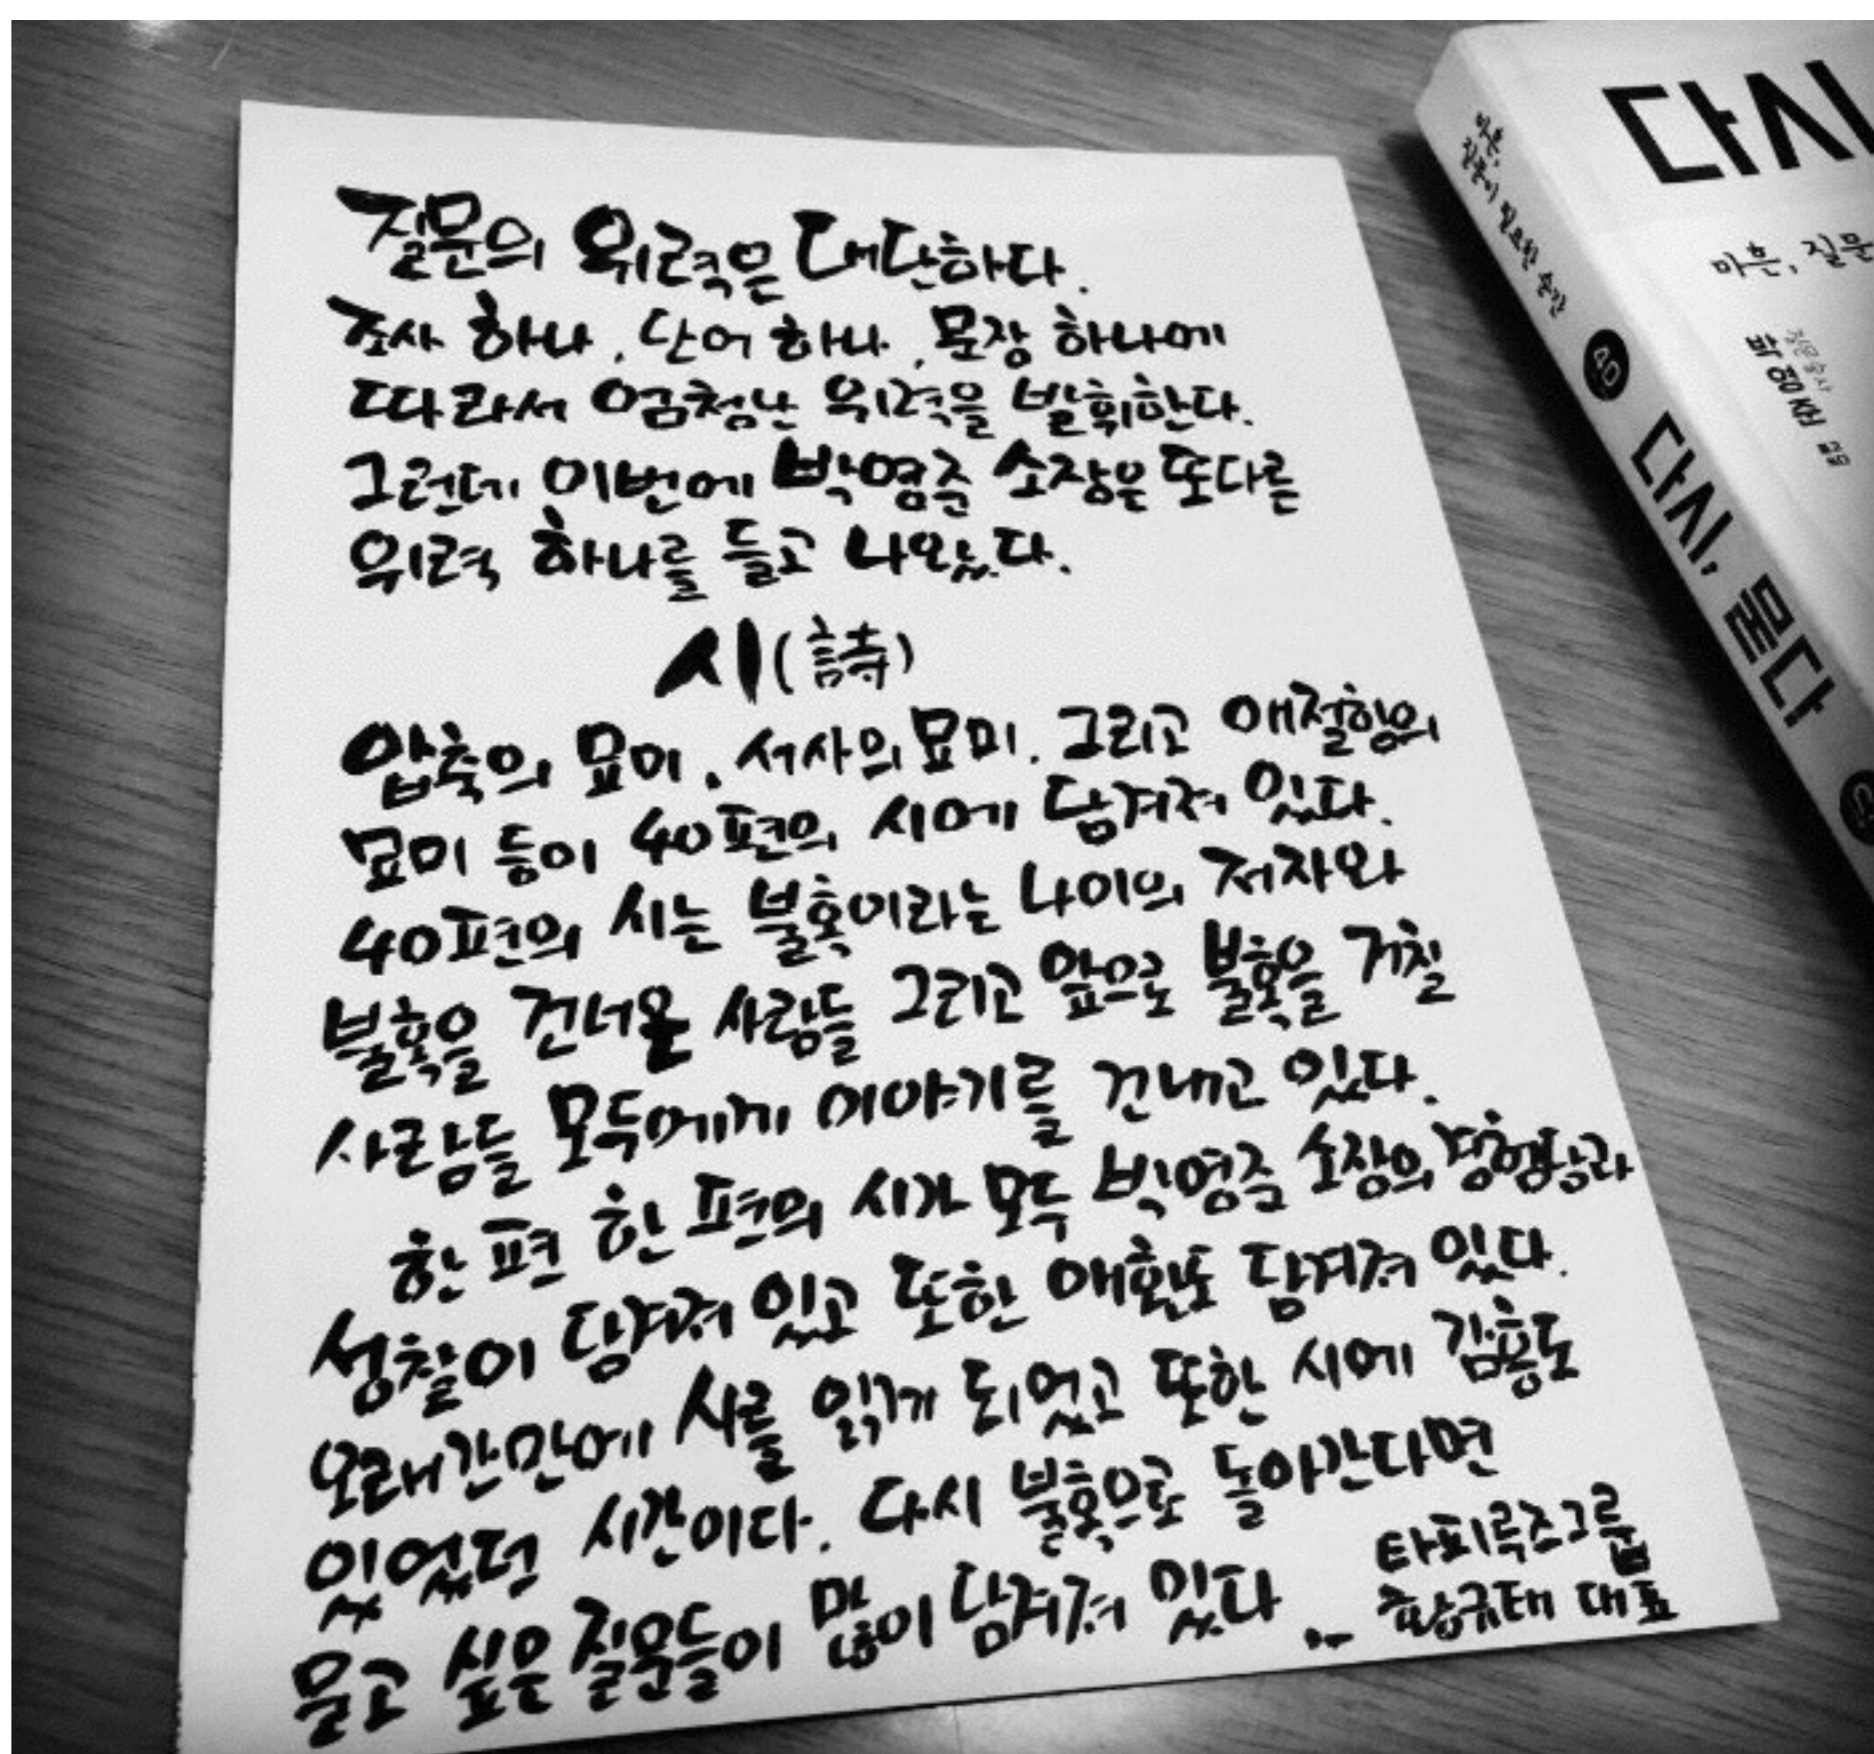 질문의 위력은 대단하다.
조사 하나, 단어 하나, 문장 하나에
따라서 엄청난 위력을 발휘한다.
그런데 이번에 박영준 소장은 또다른
위력 하나를 들고 나왔다.
시(詩)
압축의 묘미, 서사의 묘미, 그리고 애절함의
묘미 등이 40편의 시에 담겨져 있다.
40편의 시는 불혹이라는 나이의 저자와
불혹을 건너온 사람들 그리고 앞으로 불혹을 거칠
사람들 모두에게 이야기를 건내고 있다.
한편 한편의 시가 모두 박영준 소장의
성찰이 담겨져 있고 또한 애환도 담겨져 있다.
오래간만에 시를 읽게 되었고 또한 시에 감흥도
있었던 시간이다. 다시 불혹으로 돌아간다면
묻고 싶은 질문들이 많이 담겨져 있다..
타피루즈그룹
황규태 대표
다시
마흔, 질문
질문술사
박영준
마흔,
질문이 필요한 순간
40
다시, 묻다